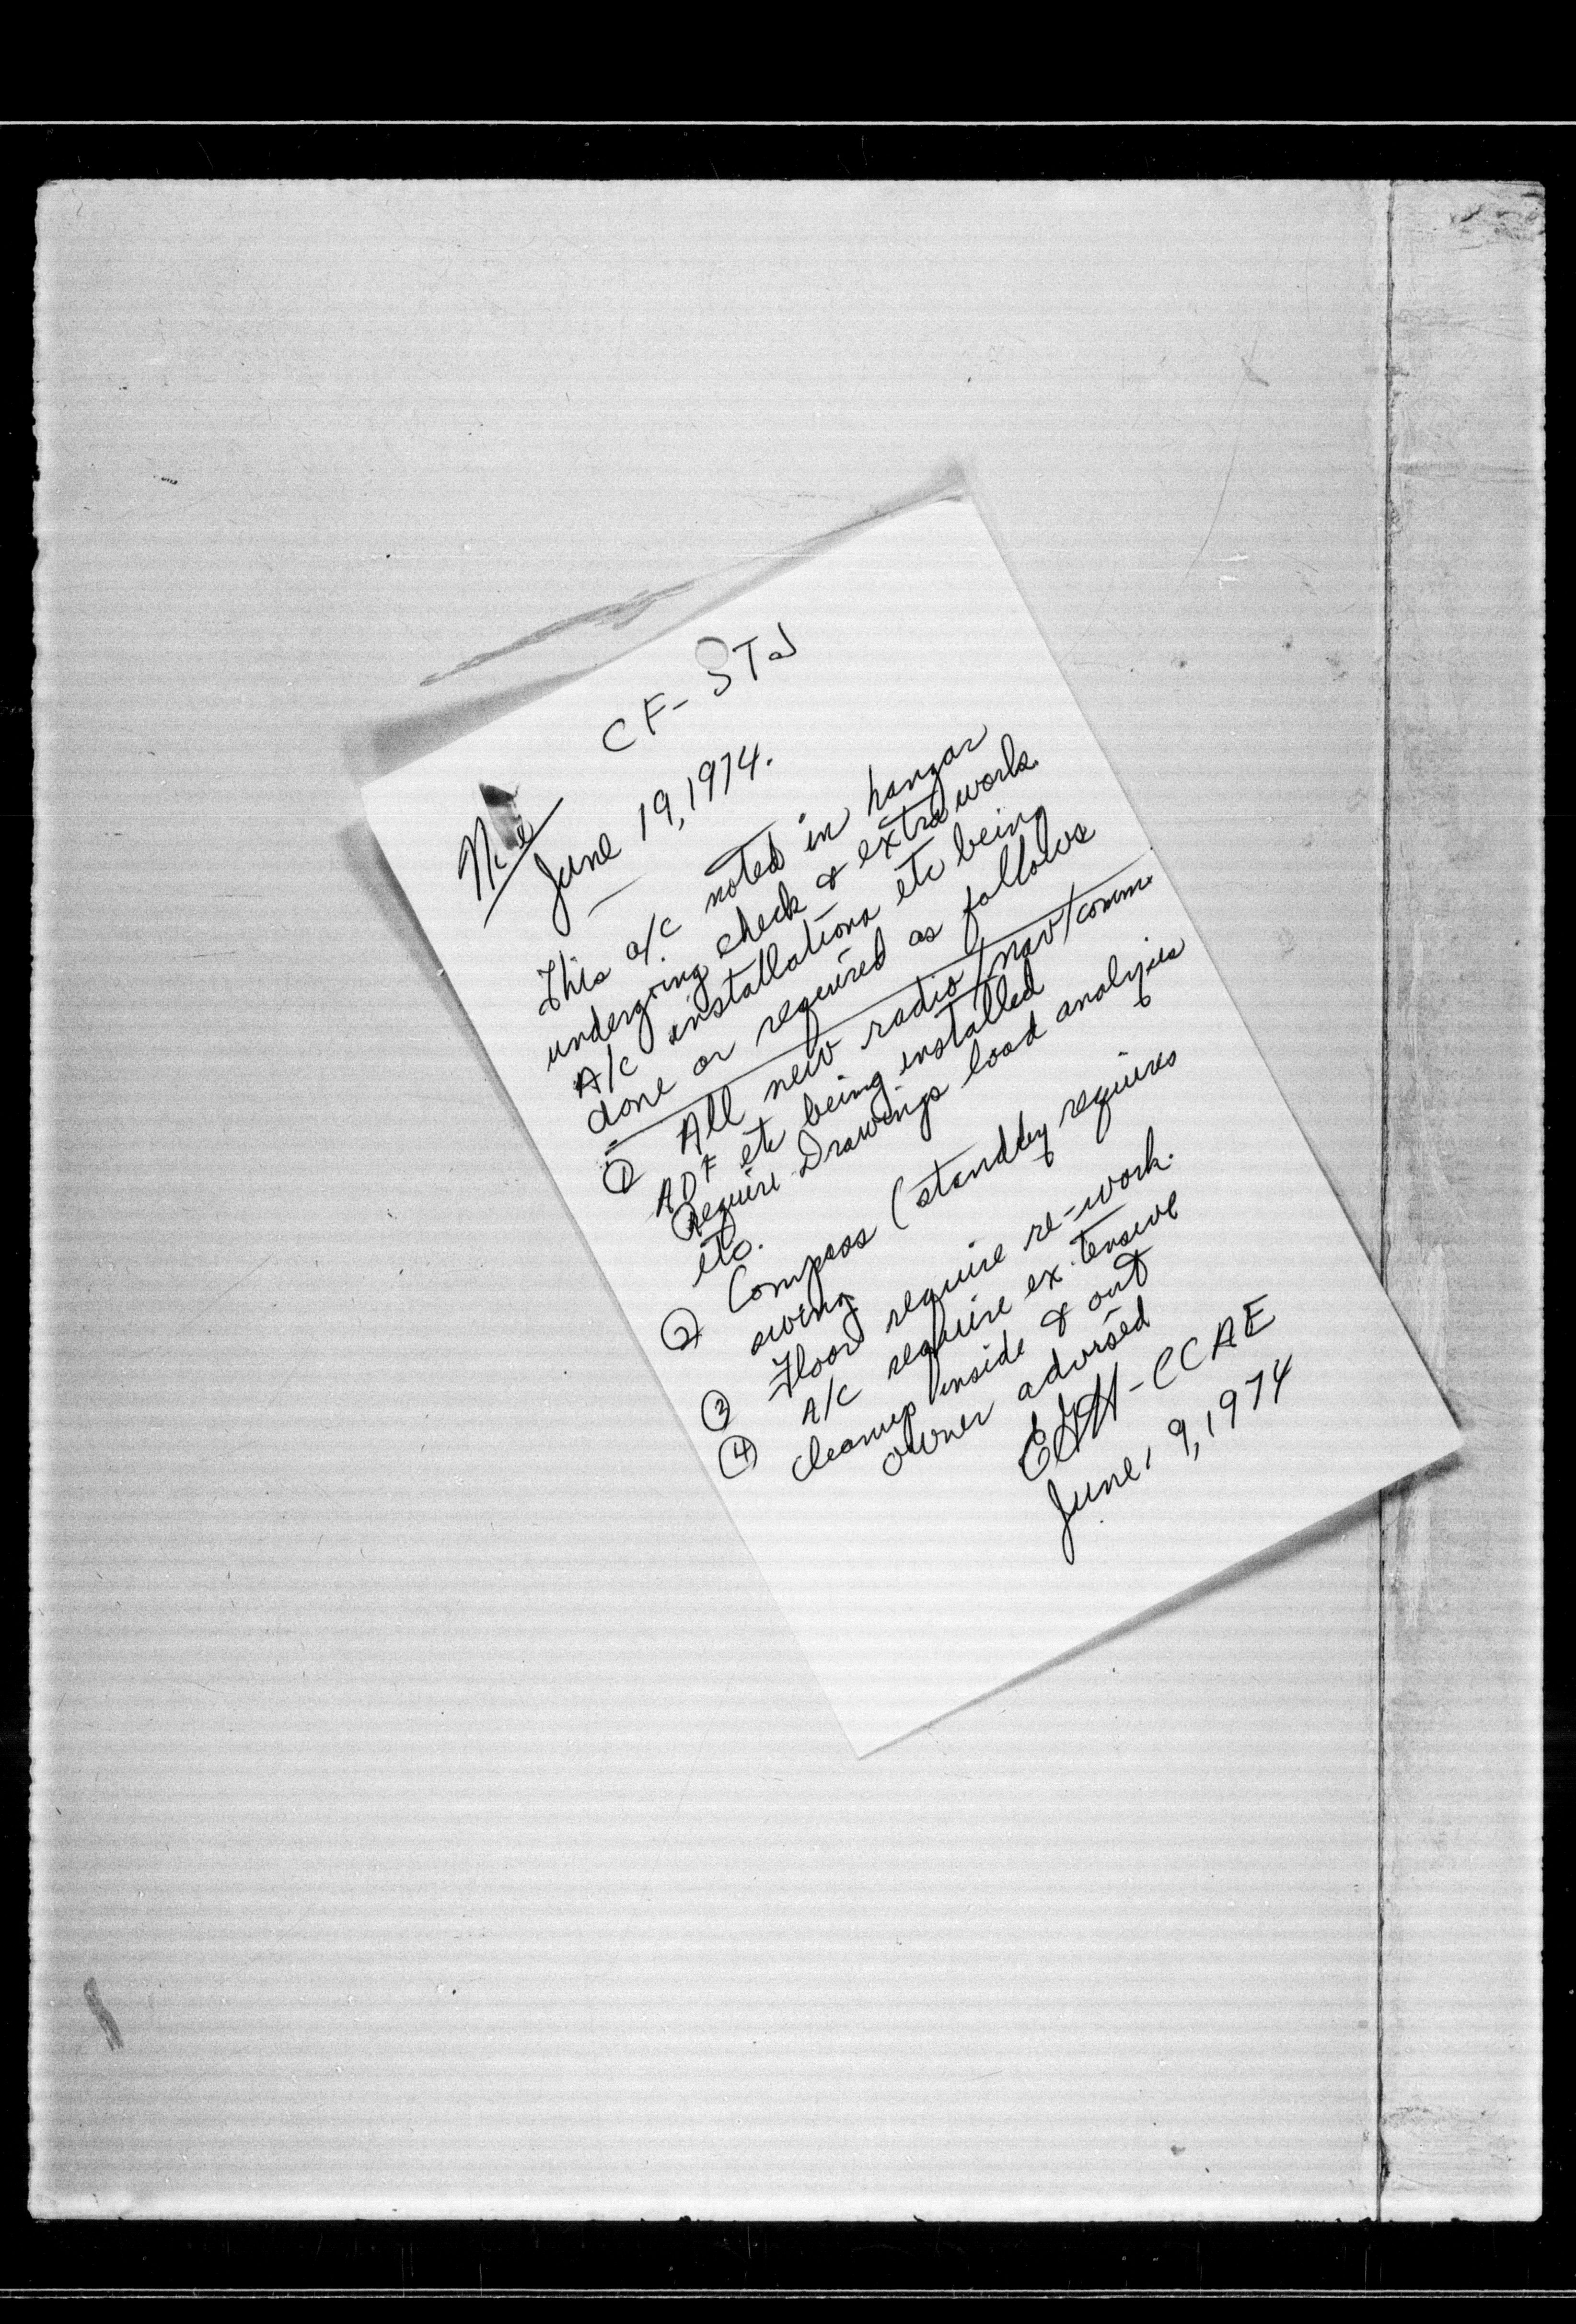 CF-STJ
June 19, 1974.
This a/c noted in hangar
undergoing check & extra work
A/C installations etc being
done or required as follows
① All new radio/nav/comm.
ADF etc being installed
Require Drawings load analysis
etc.
② Compass (standby requires
swing
③ Floor require re-work.
④ A/C require extensive
cleanup inside & out
owner advised
CCAE
June, 9, 1974